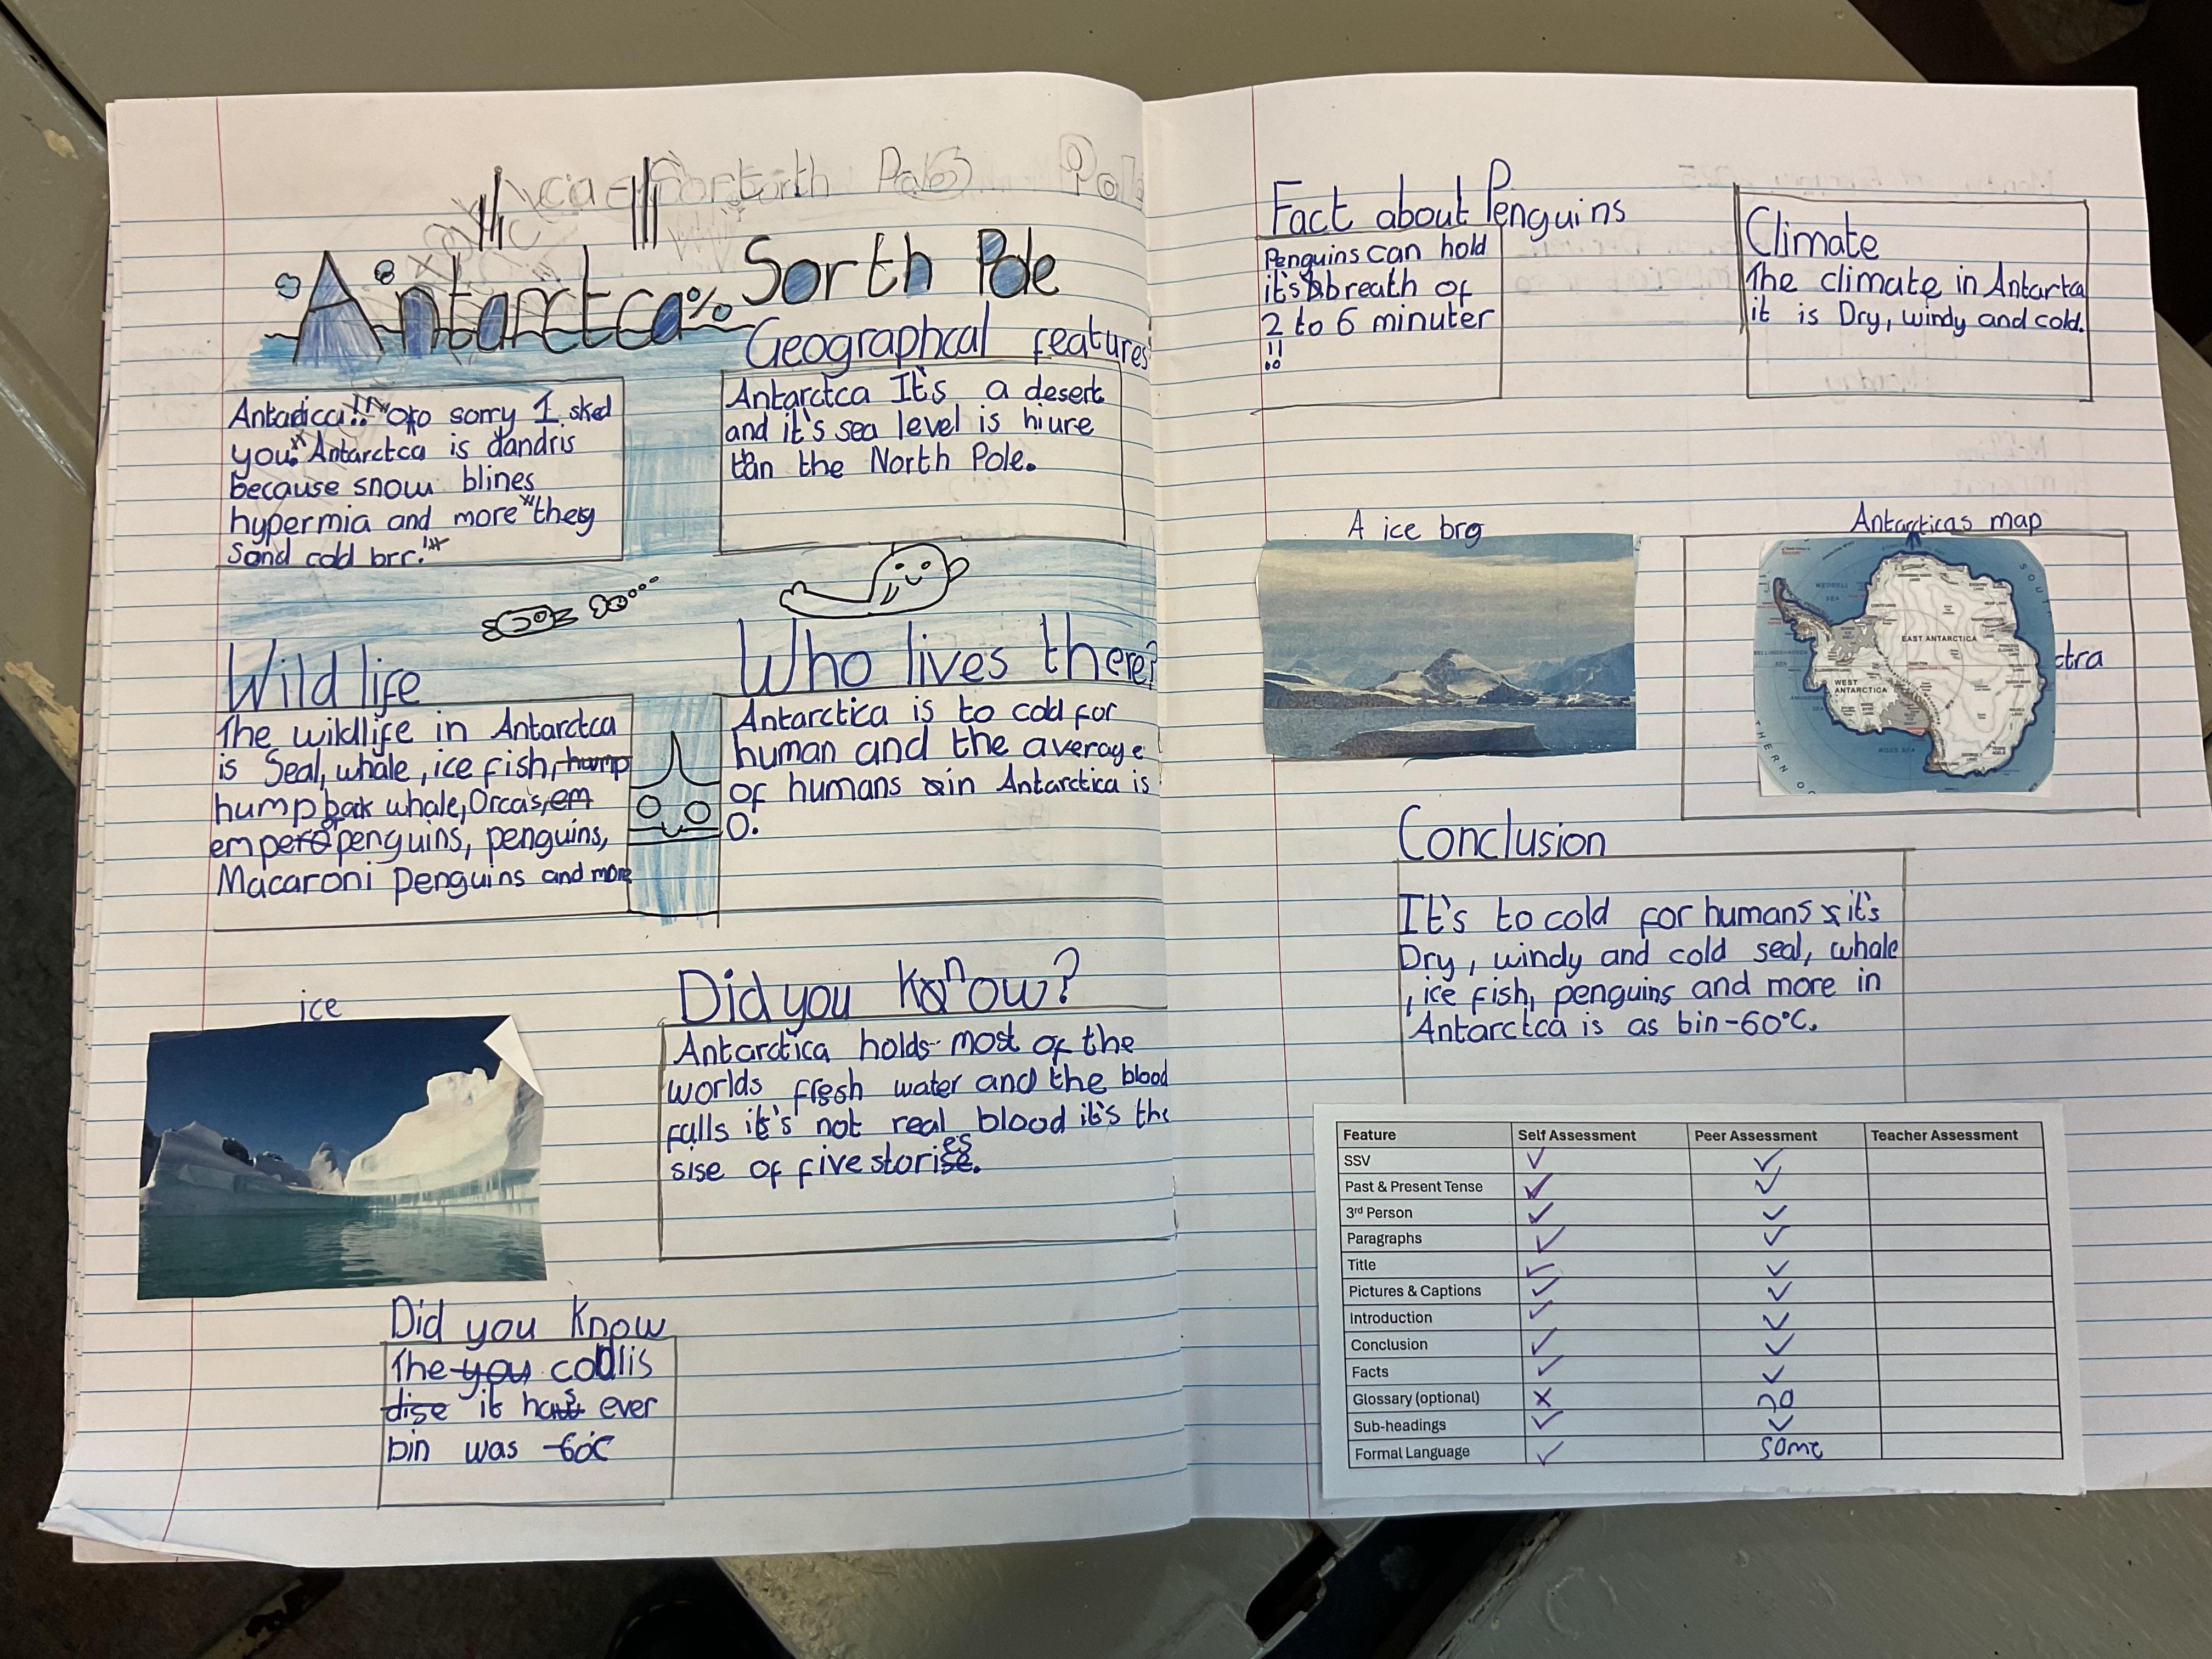 Antarctca
Sorth Pole
Antadicca!! Oto sorry I sked
you. Antarctca is dandris
because snow blines
hypermia and more they
Sand cold brr!
Geographcal features
Antarctca It's a desert
and it's sea level is hiure
tan the North Pole.
Wild life
The wildlife in Antarctca
is Seal, whale, ice fish, hump
humpback whale, Orca's, em
emperor penguins, penguins,
Macaroni penguins and more
Who lives there?
Antarctica is to cold for
human and the average
of humans in Antarctica is
0.
ice
Did you know?
Antarctica holds most of the
worlds fresh water and the blood
falls it's not real blood it's the
sise of five stories.
Did you Know
The you coollis
dise it has ever
bin was -60°C
Fact about Penguins
Penguins can hold
it's breath of
2 to 6 minuter
!!
Climate
The climate in Antartca
it is Dry, windy and cold.
A ice brg
Antarcticas map
WEDDELL
SEA
EAST ANTARCTICA
WEST
ANTARCTICA
ROSS SEA
ctra
Conclusion
It's to cold for humans it's
Dry, windy and cold seal, whale
, ice fish, penguins and more in
Antarctca is as bin -60°C.
Feature Self Assessment Peer Assessment Teacher Assessment
SSV ✓ ✓
Past & Present Tense ✓ ✓
3rd Person ✓ ✓
Paragraphs ✓ ✓
Title ✓ ✓
Pictures & Captions ✓ ✓
Introduction ✓ ✓
Conclusion ✓ ✓
Facts ✓ ✓
Glossary (optional) X no
Sub-headings ✓ ✓
Formal Language ✓ some